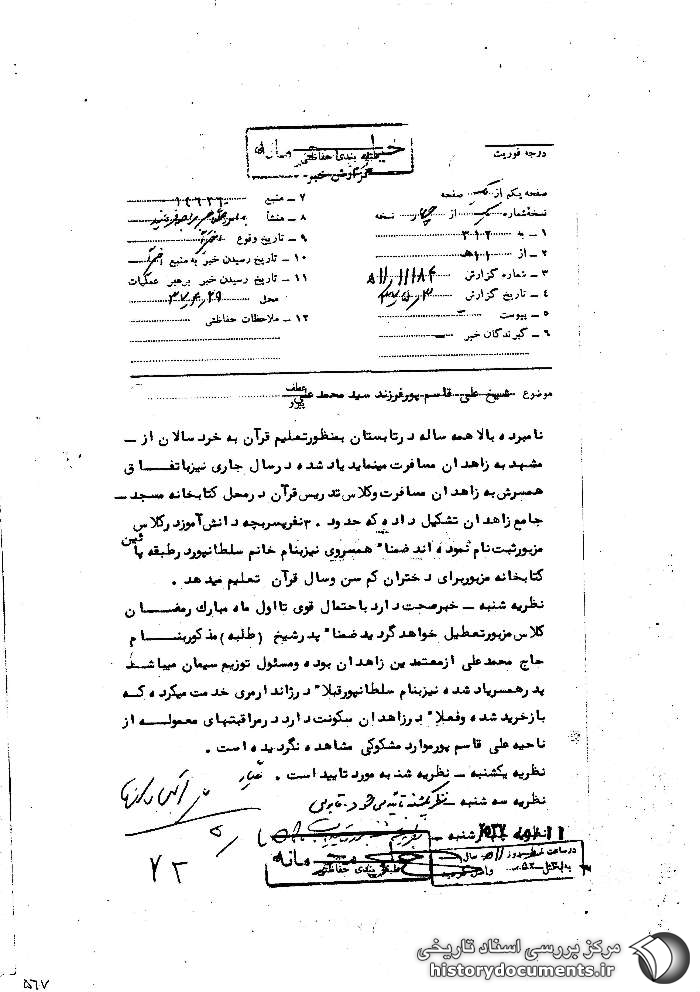 خیلی محرمانه
طبقه بندی حفاظتی
گزارش خبر
درجه فوریت
صفحه یکم از یک صفحه
نسخه شماره یک از چهار نسخه
۱ - به ۳۱۲
۲ - از ۱۱ هـ
۳ - شماره گزارش
۴ - تاریخ گزارش
۵ - پیوست
۶ - گیرندگان خبر
۷ - منبع ۱۴۶۳۶
۸ - منشأ
۹ - تاریخ وقوع
۱۰ - تاریخ رسیدن خبر به منبع
۱۱ - تاریخ رسیدن خبر برهبر عملیات
محل ۳۷/۴/۲۹
۱۲ - ملاحظات حفاظتی
موضوع شیخ علی قاسم پور فرزند سید محمد علی
عطف
پیرو
نامبرده بالا همه ساله در تابستان بمنظور تعلیم قرآن به خردسالان از -
مشهد به زاهدان مسافرت مینماید یاد شده در سال جاری نیز باتفاق
همسرش به زاهدان مسافرت و کلاس تدریس قرآن در محل کتابخانه مسجد -
جامع زاهدان تشکیل داده که حدود ۳۰ نفر پسر بچه دانش آموز در کلاس
مزبور ثبت نام نموده اند ضمنا" همسر وی نیز بنام خانم سلطانپور در طبقه پائین
کتابخانه مزبور برای دختران کم سن و سال قرآن تعلیم میدهد .
نظریه شنبه - خبر صحت دارد باحتمال قوی تا اول ماه مبارک رمضان
کلاس مزبور تعطیل خواهد گردید ضمنا" پدر شیخ (طلبه) مذکور بنام
حاج محمد علی از معتمدین زاهدان بوده و مسئول توزیع سیمان میباشد
پدر همسر یاد شده نیز بنام سلطانپور قبلا" در ژاندارمری خدمت میکرده که
بازخرید شده و فعلا" در زاهدان سکونت دارد در مراقبتهای معموله از
ناحیه علی قاسم پور موارد مشکوکی مشاهده نگردیده است .
نظریه یکشنبه - نظریه شنبه مورد تایید است .
نظریه سه شنبه - نظر یکشنبه تأیید می شود.
نظریه چهارشنبه -
خیلی محرمانه
طبقه بندی حفاظتی
در ساعت روز سال
به بخش واصل گردید
۷۲
مرکز بررسی اسناد تاریخی
historydocuments.ir
۵۶۷